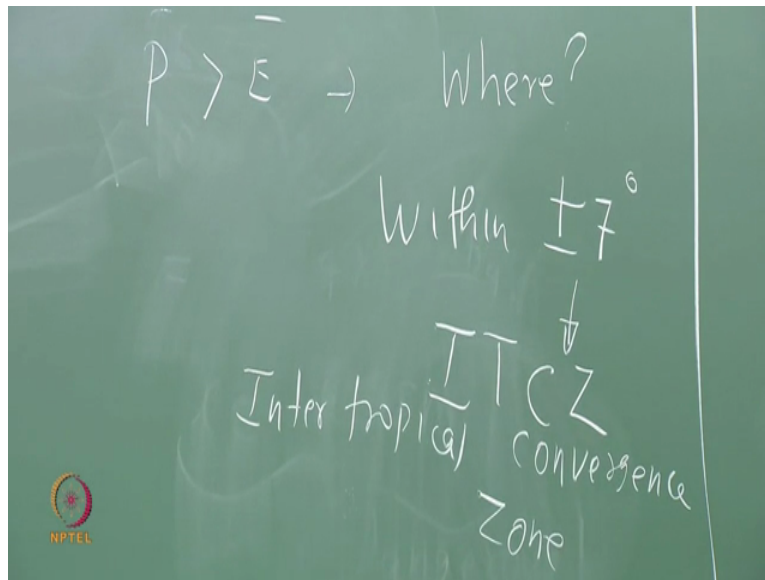 P > E → Where?
Within ±7°
↓
ITCZ
Inter tropical convergence
Zone
NPTEL